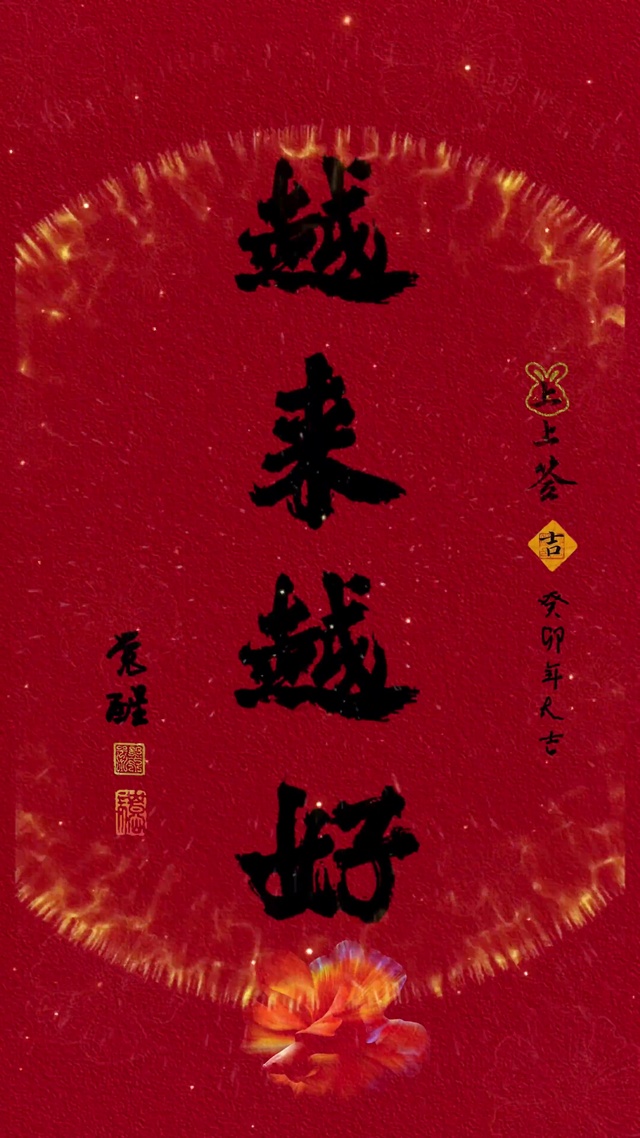 越来越好
上上签
吉
癸卯年大吉
觉醒